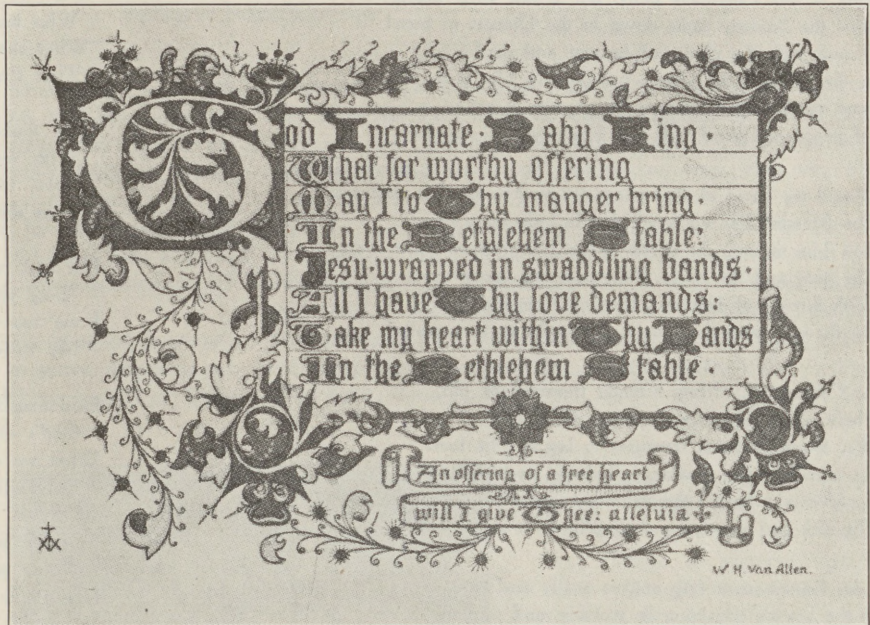 God Incarnate · Baby King ·
What for worthy offering
May I to Thy manger bring ·
In the Bethlehem Stable:
Jesu · wrapped in swaddling bands ·
All I have Thy love demands:
Take my heart within Thy Hands
In the Bethlehem Stable ·
An offering of a free heart
will I give Thee: alleluia ✠
W H Van Allen.